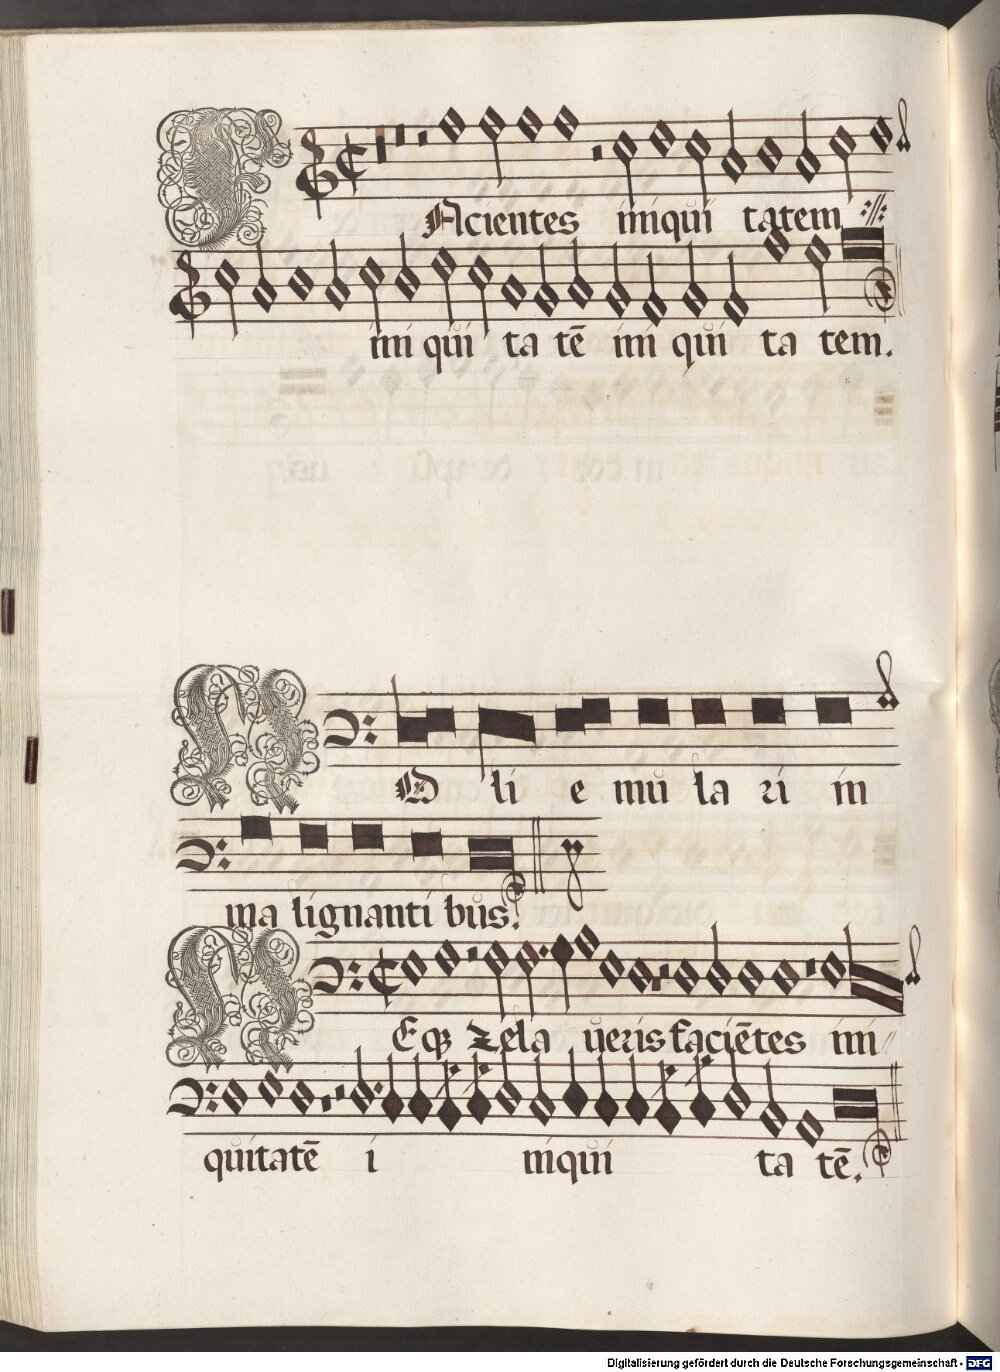 FAcientes iniqui tatem
ini qui ta tē ini qui ta tem.
NO li e mu la ri in
ma lignanti bus.
NEqʒ zela ueris faciētes ini
quitatē i niqui ta tē.
Digitalisierung gefördert durch die Deutsche Forschungsgemeinschaft - DFG